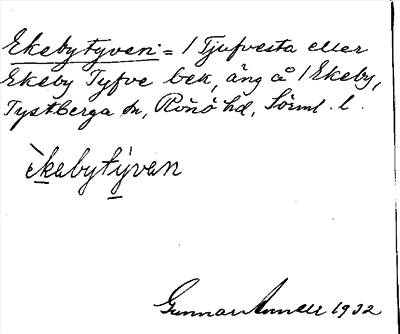 Ekebytyven = / Tjufvesta eller
Ekeby Tyfve bek, äng å / Ekeby,
Tystberga sn, Rönö hd, Sörml. l.
èkabytývan
Gunnar 1932